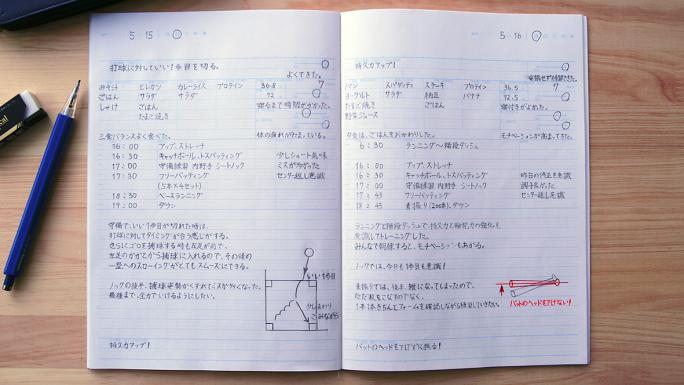 5 15
打球に対していい1歩目を切る。
よくできた。
みそ汁 ヒレカツ カレーライス プロテイン 36.5
7
ごはん サラダ サラダ 72
しゃけ ごはん 寝るまで時間がかかった。
たまご焼き
三食バランスよく食べた。 体の疲れがたまっている。
16:00 アップ、ストレッチ
16:30 キャッチボール、トスバッティング 少しシュート気味
17:00 守備練習 内野手 シートノック ミスが多かった
17:30 フリーバッティング センター返し意識
(5本×4セット)
18:30 ベースランニング
19:00 ダウン
守備で、いい1歩目が切れた時は、
打球に対してタイミングが合う感じがする。
さらにゴロを捕球する時も左足が前で、
左足のかかとから捕球に入れるので、その後の
一塁へのスローイングがとてもスムーズにできる。
ノックの後半、捕球姿勢がくずれてミスが多くなった。
最後まで、全力でいけるようにしたい。
いい1歩目
少しまわり
こみながら
持久力アップ!
5 16
持久力アップ!
パン スパゲッティ ステーキ プロテイン 36.5
7
ヨーグルト サラダ 納豆 バナナ 72.5
たまご焼き ごはん 寝付きがよかった。
野菜ジュース
夕食は、ごはんをおかわりした。 モチベーションが高まってきた。
6:30 ランニング〜階段ダッシュ
16:00 アップ、ストレッチ
16:30 キャッチボール、トスバッティング 昨日の修正を意識
17:00 守備練習 内野手 シートノック 調子よかった
17:45 フリーバッティング センター返し意識
18:45 素振り(200本)、ダウン
ランニングと階段ダッシュで、持久力と瞬発力の強化を
意識しトレーニングした。
みんなで刺激すると、モチベーションもあがる。
ノックでは、今日も1歩目を意識!
素振りでは、後半、雑になってしまったので、
ただ数をこなすのでなく、
1本1本きちんとフォームを確認しながら練習していきたい。
バットのヘッドを下げない!
バットのヘッドを下げずに振る!